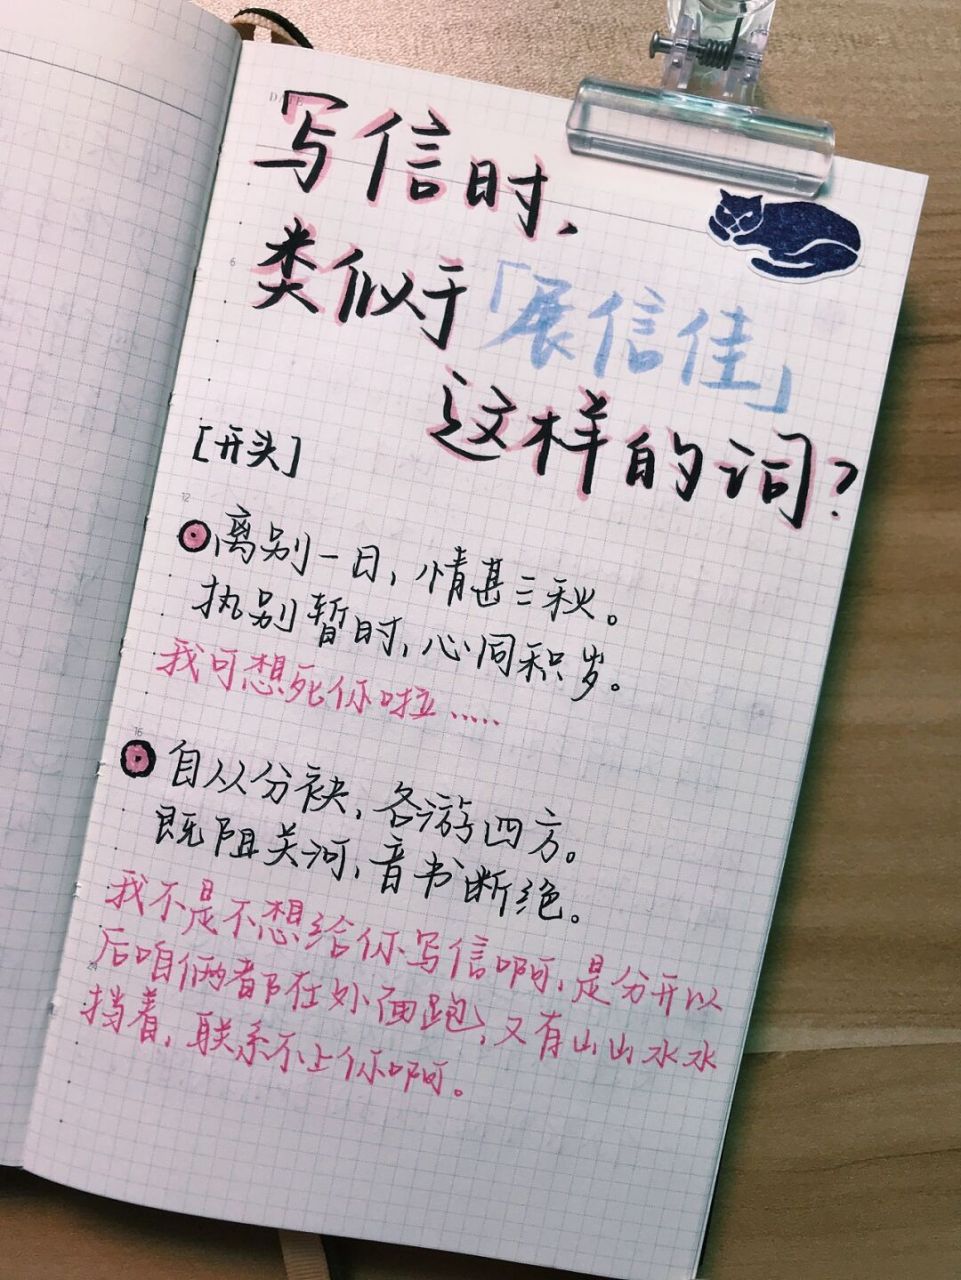 DATE
写信时，
类似于「展信佳」
这样的词？
6
[开头]
12
离别一日，情甚三秋。
执别暂时，心同积岁。
我可想死你啦……
16
自从分袂，各游四方。
既阻关河，音书断绝。
我不是不想给你写信啊，是分开以
后咱俩都在外面跑，又有山山水水
24
挡着，联系不上你啊。